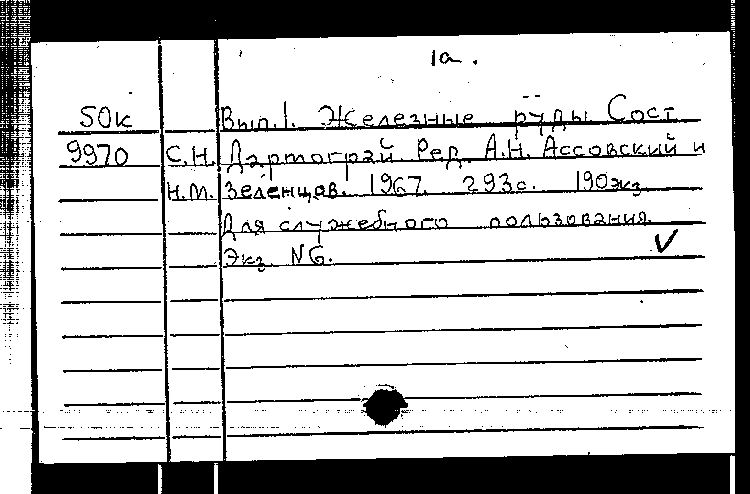 1а.
50к Вып.1. Железные руды Сост
9970 С.Н. Дартаграй Ред. А.Н. Ассовский и
Н.М. Зеленцов. 1967. 293с. 190экз
Для служебного пользования.
Экз. N6. V